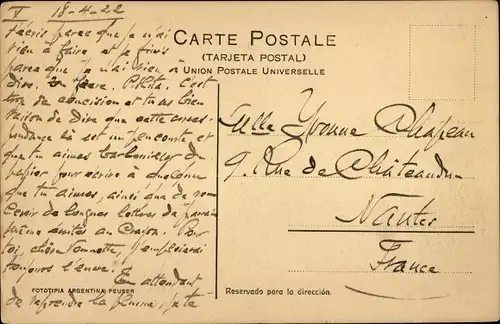 V 18-4-22
J'écris parce que je n'ai
rien à faire et je finis
parce que je n'ai rien à
dire. Ton frère, C'est
trop de concision et tu as bien
raison de dire que cette corres-
pondance là est un peu courte et
que tu aimes barbouiller du
papier pour écrire à quelqu'un
que tu aimes, ainsi que de re-
cevoir de longues lettres de parrain
même écrites au Crayon. Pour
toi, chère Vonnette, j'emploierai
toujours l'encre. En attendant
de reprendre la plume je te
CARTE POSTALE
(TARJETA POSTAL)
UNION POSTALE UNIVERSELLE
Melle Yvonne Chapeau
9, Rue de Châteaudun
Nantes
France
FOTOTIPIA ARGENTINA PEUSER
Reservado para la dirección.